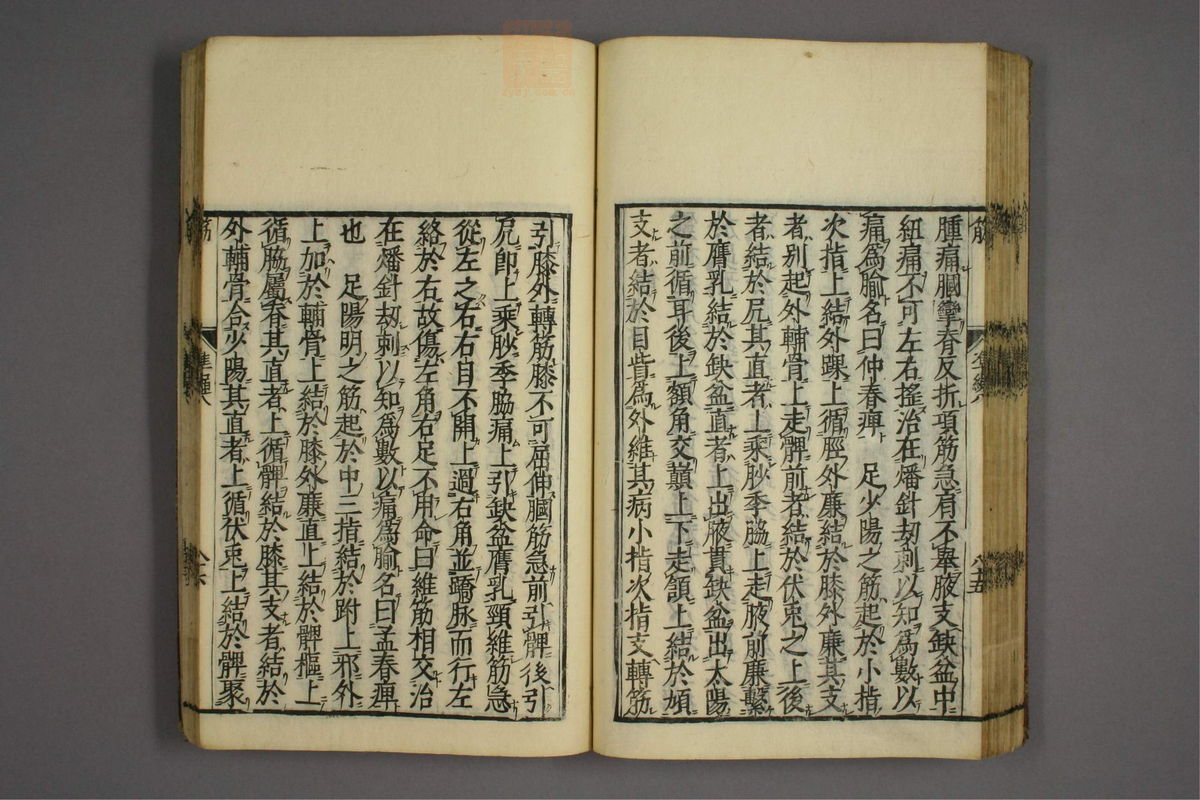 腫痛膕攣脊反折項筋急肩不舉腋支缺盆中
紐痛不可左右搖治在燔針刼刺以知爲數以
痛爲腧名曰仲春痺　足少陽之筋起於小指
次指上結外踝上循脛外廉結於膝外廉其支
者別起外輔骨上走髀前者結於伏兎之上後
者結於尻其直者上乘䏚季脇上走腋前廉繫
於膺乳結於缺盆直者上出腋貫缺盆出太陽
之前循耳後上額角交巓上下走頷上結於頄
支者結於目眥爲外維其病小指次指支轉筋
引膝外轉筋膝不可屈伸膕筋急前引髀後引
尻卽上乘䏚季脇痛上引缺盆膺乳頸維筋急
從左之右右目不開上過右角並蹻脉而行左
絡於右故傷左角右足不用命曰維筋相交治
在燔針刼刺以知爲數以痛爲腧名曰孟春痺
也　足陽明之筋起於中三指結於跗上邪外
上加於輔骨上結於膝外廉直上結於髀樞上
循脇屬脊其直者上循骭結於膝其支者結於
外輔骨合少陽其直者上循伏兎上結於髀聚
筋
八五
筋
八六